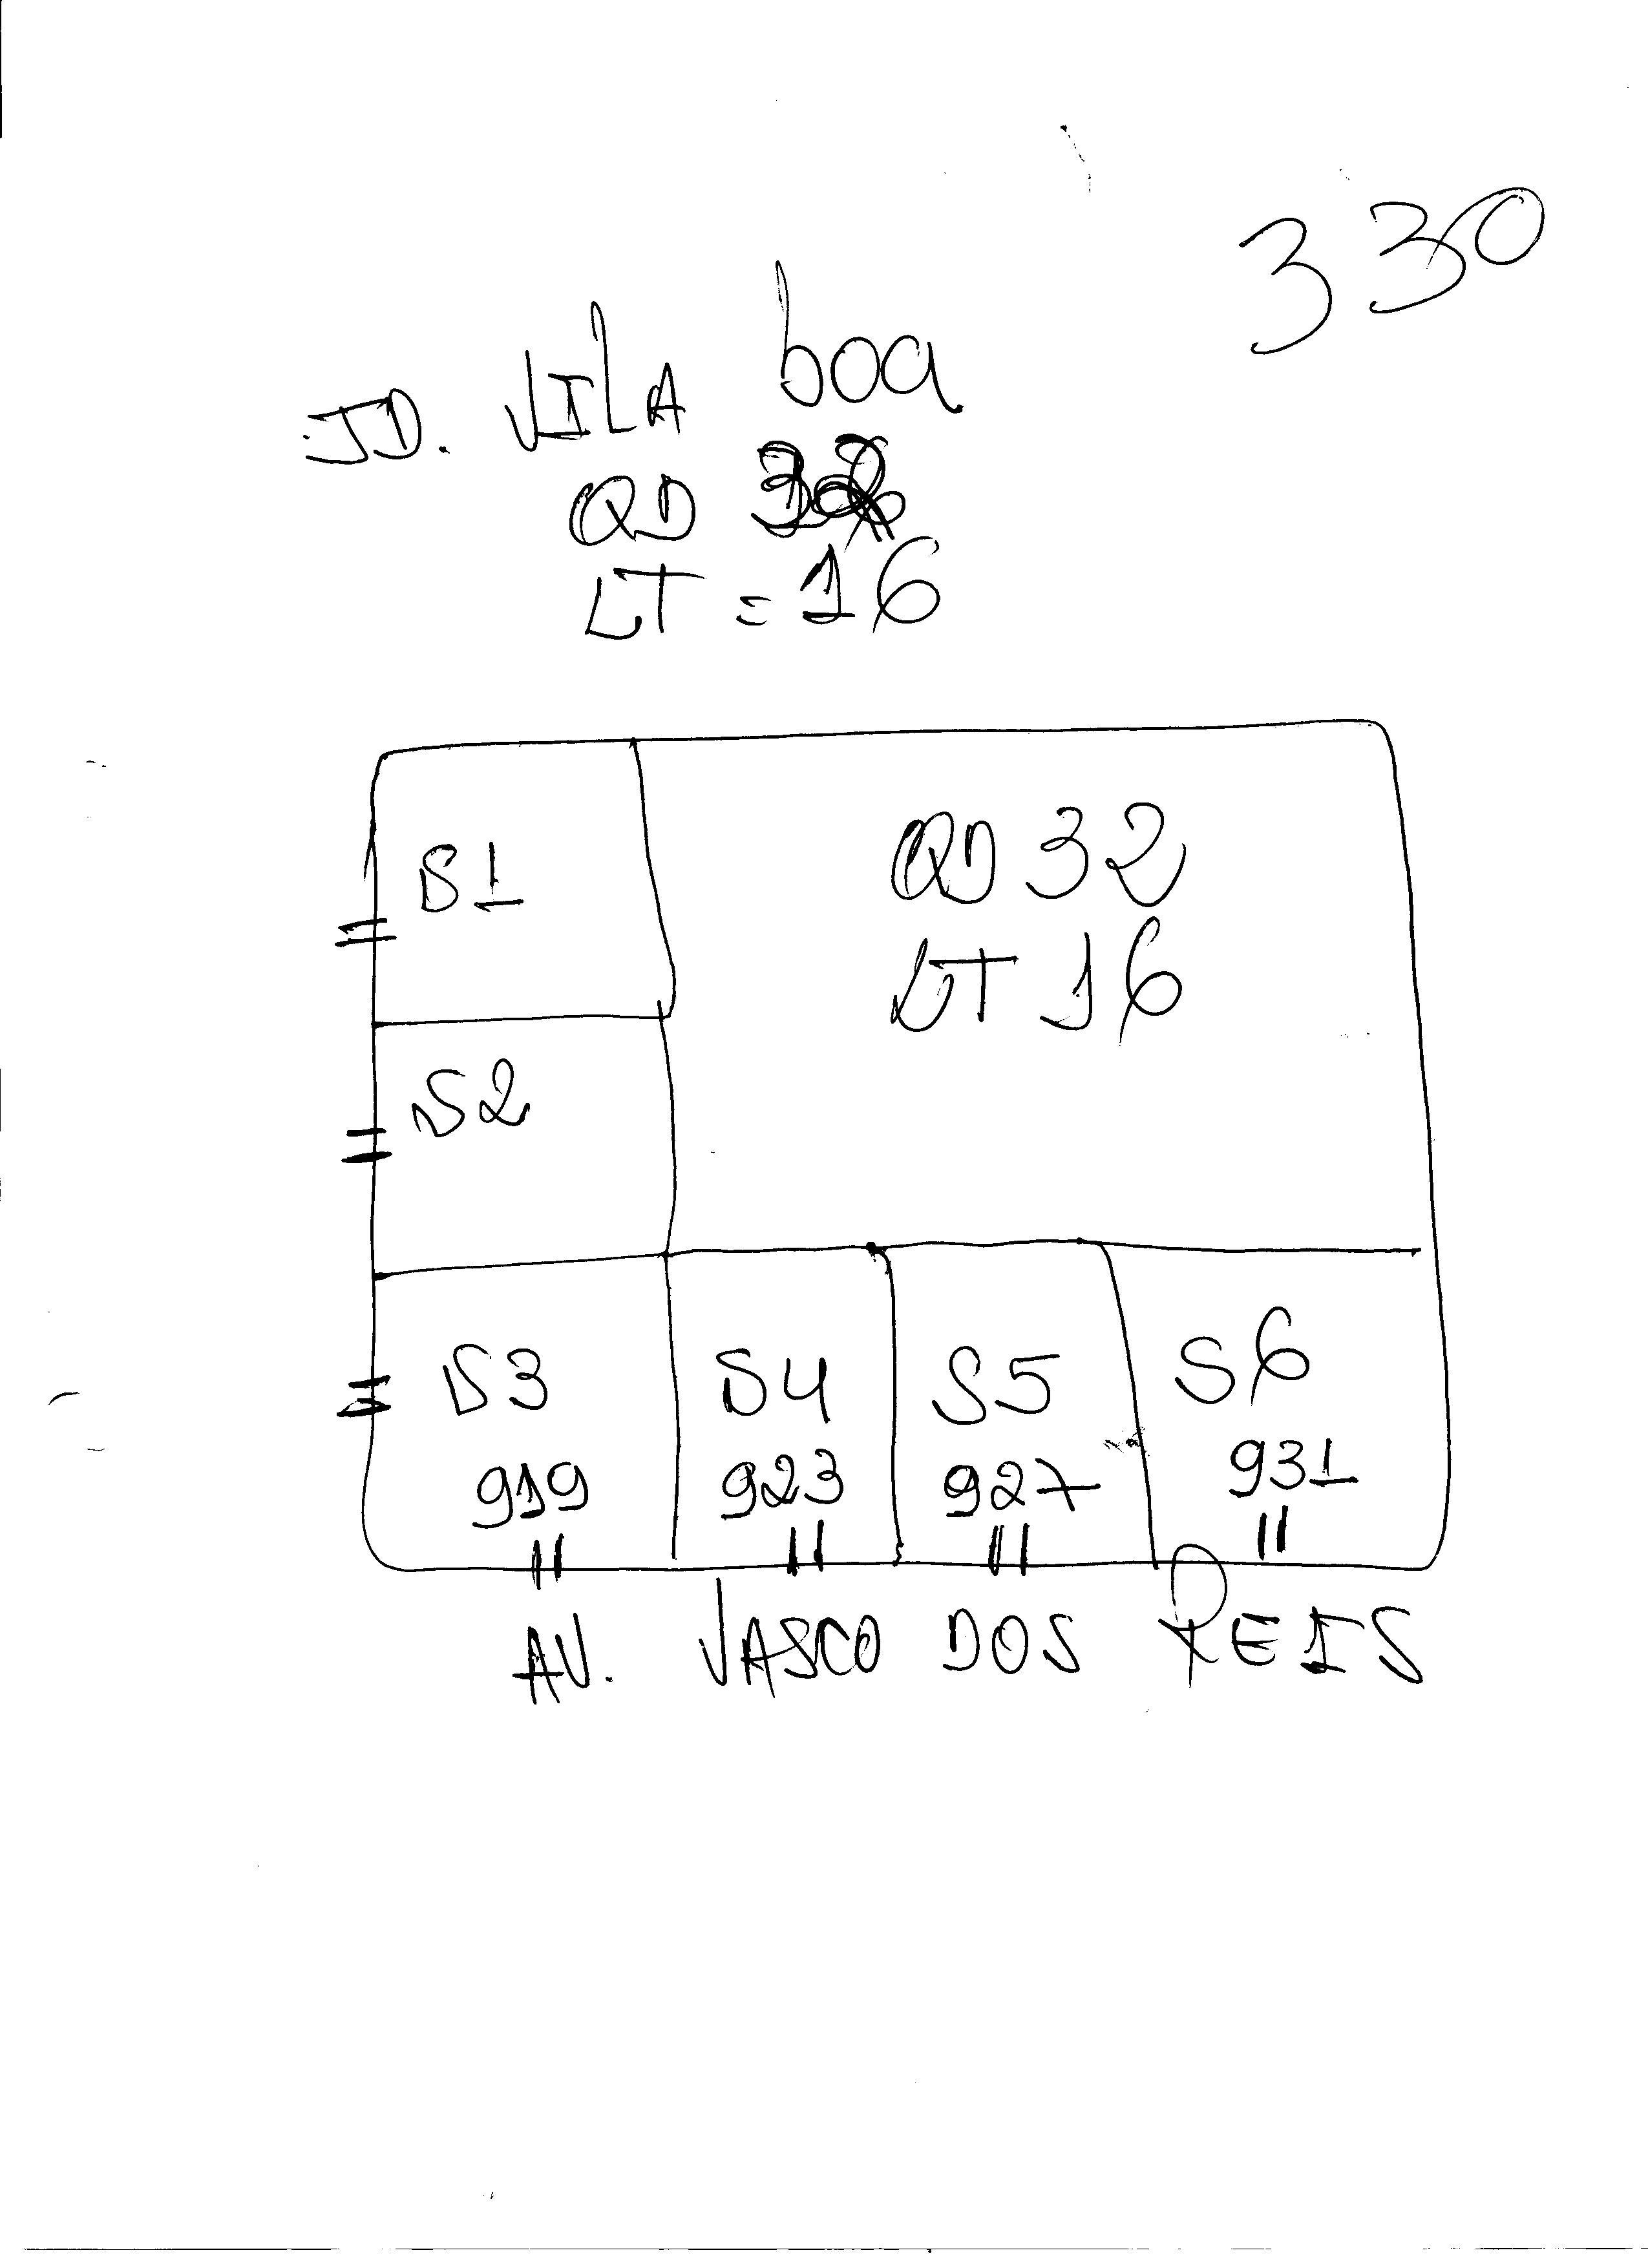 330
JD. VILA boa
QD 32
LT = 16
S1
QD 32
LT 16
S2
S3
919
S4
923
S5
927
S6
931
AV. VASCO DOS REIS